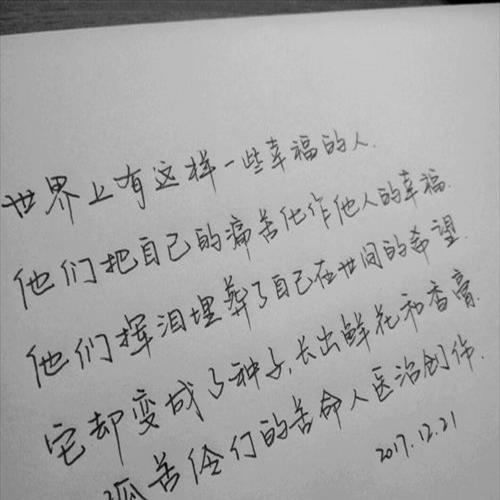 世界上有这样一些幸福的人.
他们把自己的痛苦化作他人的幸福.
他们挥泪埋葬了自己在世间的希望.
它却变成了种子,长出鲜花和香膏.
孤苦伶仃的苦命人医治创伤.
2017.12.21